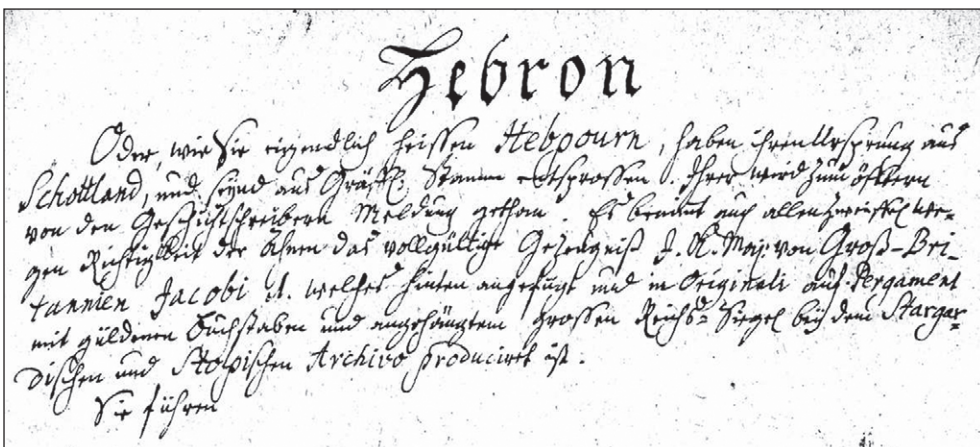 Hebron
Oder, wie Sie eigendlich heissen Hebpourn, haben ihren Ursprung aus
Schottland, und seynd aus Gräffl: Stamm entsprossen. Ihrer wird zum öfftern
von den Geschichtschreibern Meldung gethan. Es benimt auch allen Zweiffel we-
gen Richtigkeit der Ahnen das vollgültige Gezeugniß J. K. Maj: von Groß-Bri-
tannien Jacobi welches hinten angefügt und in Originali auf Pergament
mit güldenen Buchstaben und angehängtem grossen Reichs-Siegel bey dem Stargar-
dischen und Archivo producirt ist.
Sie führen